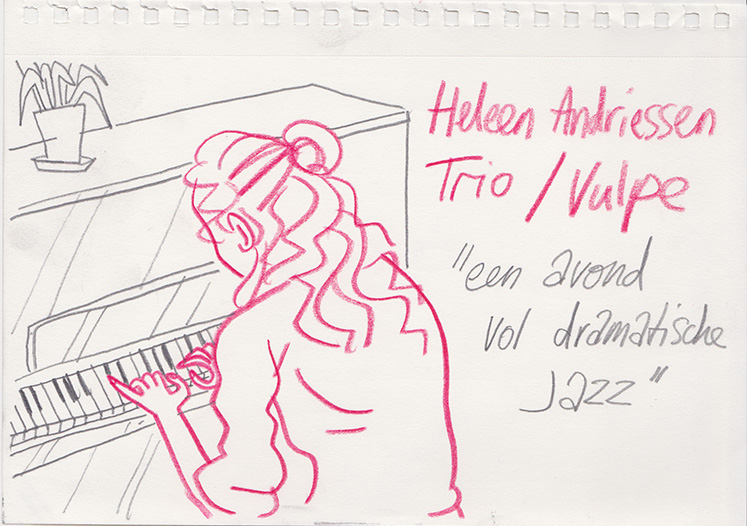 Heleen Andriessen
Trio / Vulpe
"een avond
vol dramatische
Jazz"